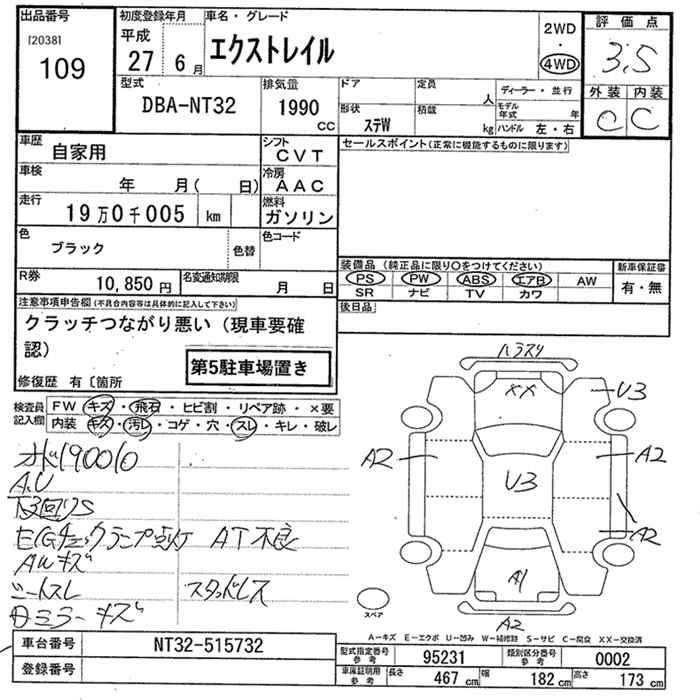 出品番号
[2038]
109
初度登録年月
平成
27 6月
車名・グレード
エクストレイル
2WD
・
4WD
評価点
3.5
外装 内装
C C
型式
DBA-NT32
排気量
1990
cc
ドア
定員
人
ディーラー・並行
形状
ステW
積載
kg
モデル年式
年
ハンドル 左・右
車歴
自家用
シフト
CVT
セールスポイント(正常に機能するものに限ります)
車検
年 月( 日)
冷房
AAC
走行
19万0千005 km
燃料
ガソリン
色
ブラック
色替
色コード
R券
10,850円
名変通知期限
月 日
装備品(純正品に限り○をつけてください)
PS PW ABS エアB AW
SR ナビ TV カワ
新車保証書
有・無
後日品
注意事項申告欄(不具合内容等は具体的に記入して下さい)
クラッチつながり悪い(現車要確
認)
第5駐車場置き
修復歴 有〔箇所
検査員
記入欄
FW キズ・飛石・ヒビ割・リペア跡・×要
内装 キズ・汚レ・コゲ・穴・スレ・キレ・破レ
A,U
下廻りS
EGチェックランプ点灯 AT不良
AWキズ
シートスレ スタッドレス
ミラーキズ
ハラスリ
XX
U3
A2
A2
U3
A2
A1
A2
スペア
A-キズ E-エクボ U-凹み W-補修跡 S-サビ C-腐食 XX-交換済
車台番号
NT32-515732
登録番号
型式指定番号
参考
95231
類別区分番号
参考
0002
車庫証明用
参考
長さ
467 cm
幅
182 cm
高さ
173 cm